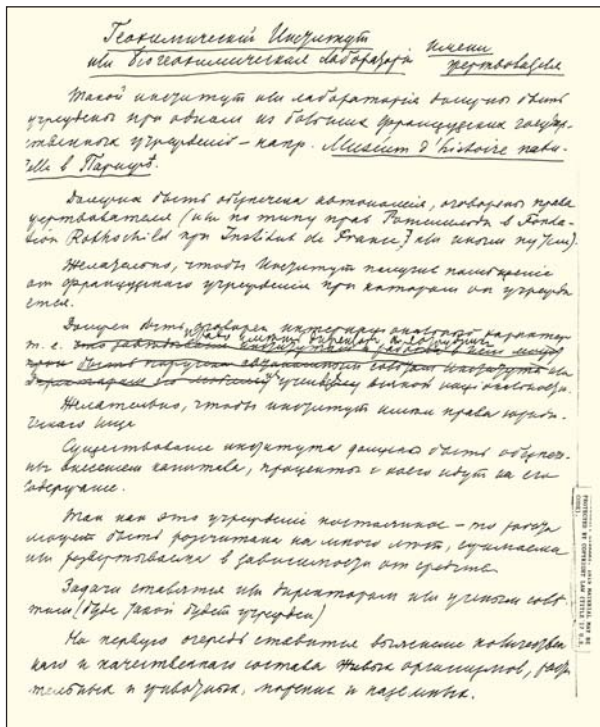 Геохимическій Институт имени
или Біогеохимическая Лабораторія жертвователя
Такой институт или лабораторія должны быть
учреждены при одном из больших французских государ-
ственных учрежденій – напр. Muséum d'histoire natu-
relle в Парижѣ.
Должна быть обезпечена автономія, оговорены права
жертвователя (или по типу прав Ротшильда в Fonda-
tion Rothschild при Institut de France, или иным путем).
Желательно, чтобы Институт получил помѣщение
от французскаго учрежденія при котором он учрежда-
ется.
Должен быть оговорен интернаціональный характер
т. е. право быть
ученому всякой національности.
Желательно, чтобы институт имел права юриди-
ческаго лица
Существование института должно быть обезпече-
но внесением капитала, проценты с коего идут на его
содержание.
Так как это учрежденіе постоянное – то работа
может быть разсчитана на много лет, сжимаема
или развертываема в зависимости от средств.
Задачи ставятся или директором или ученым совѣ-
том (буде такой будет учрежден)
На первую очередь ставится выяснение количествен-
наго и качественнаго состава живых организмов, расти-
тельных и животных, морских и наземных.
PROTECTED BY COPYRIGHT LAW (TITLE 17 U.S.
CODE).